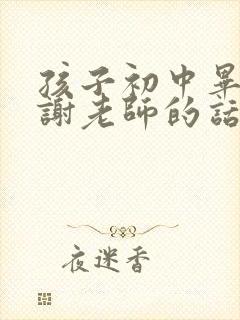 孩子初中畢
謝老師的話
夜迷香